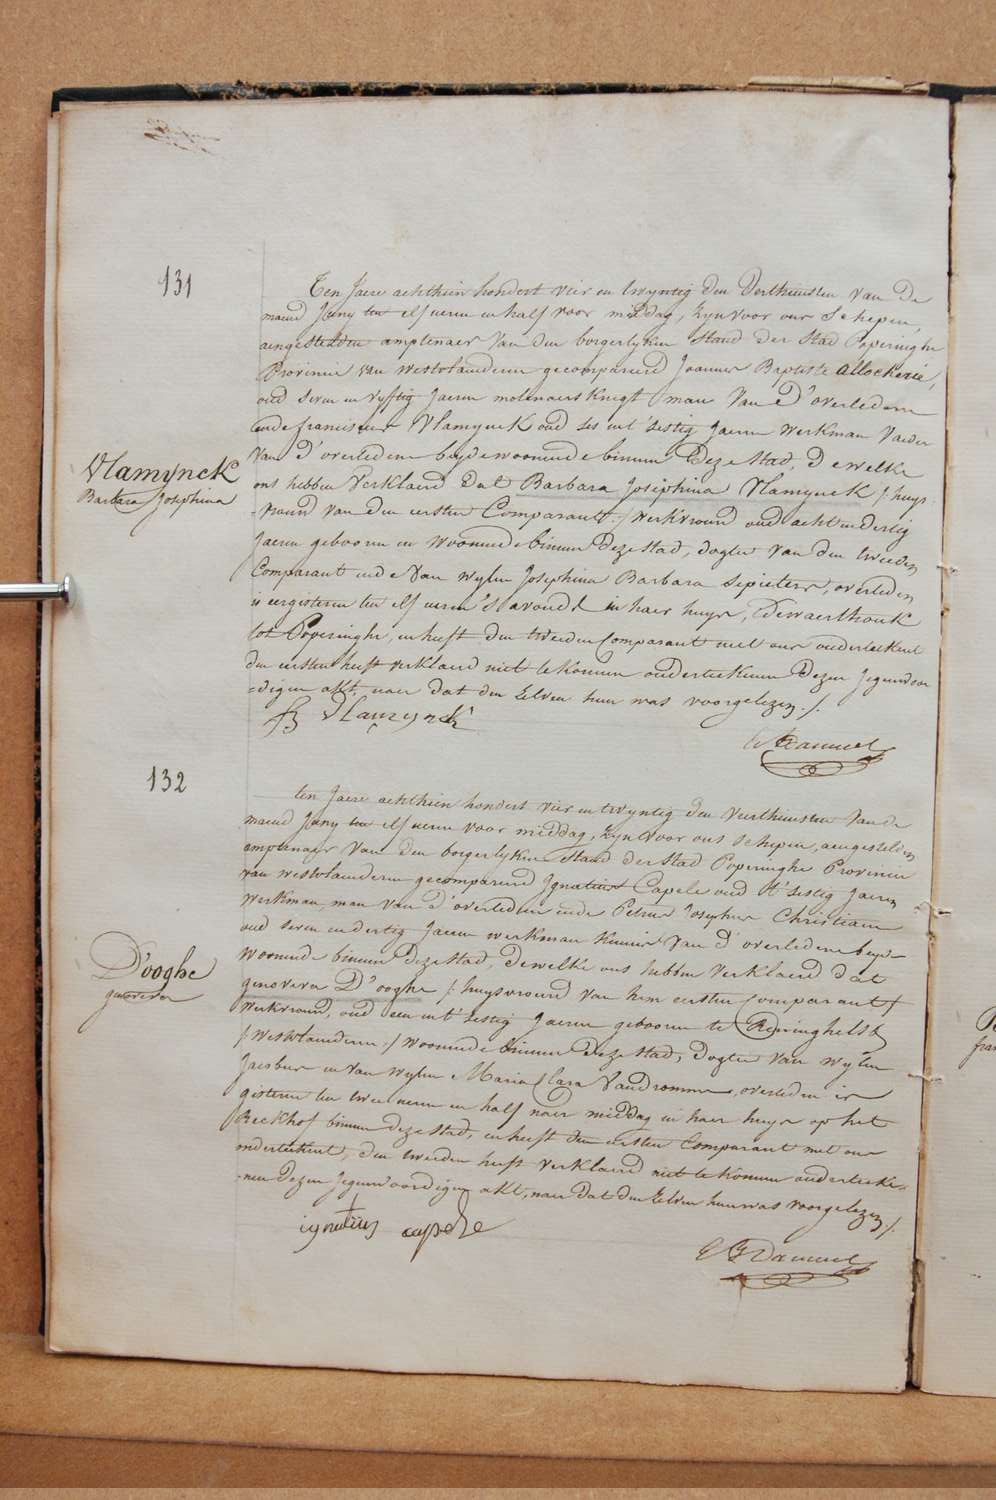 131
Ten Jaere achthien hondert vier en twyntig den Derthiensten van De
maend Juny ten elf ueren en half voor middag, zyn voor ons Schepen,
aengestelden amptenaer van den borgerlyken Stand der Stad Poperinghe
Provincie van Westvlaenderen gecompareerd Joannes Baptiste Allockerie,
oud seven en vyftig Jaeren molenaersknegt man van D'overledene
ende franciscus Vlamynck oud ses en t'sestig Jaeren werkman Vaeder
van D'overledene beyde woonende binnen Deze Stad, Dewelke
Vlamynck
Barbara Josephina
ons hebben Verklaerd Dat Barbara Josephina Vlamynck /: huys-
-vrouw van den eersten Comparant :/ werkvrouw oud acht en dertig
Jaeren gebooren en woonende binnen Deze Stad, dogter van den tweeden
Comparant ende van wylen Josephina Barbara Sepieters, overleden
is eergisteren ten elf ueren 's avonds in haer huys,
tot Poperinghe, en heeft den tweeden Comparant met ons onderteekent
den eersten heeft verklaerd niet te konnen onderteekenen Dezen Jegenwoor
-digen akt, naer dat den zelven hun was voorgelezen ./.
Vlamynck
132
ten Jaere achthien hondert vier en twyntig den Veerthiensten van de
maend Juny ten elf ueren voor middag, zyn voor ons Schepen, aengestelden
amptenaer van den borgerlyken Stand der Stad Poperinghe Provincie
van Westvlaenderen gecompareerd Ignatius Capele oud t'sestig Jaeren
werkman, man van d'overledene ende Petrus Josephus Christiaen
oud seven en dertig Jaeren werkman kennis van d'overledene beyde
woonende binnen Deze Stad, Dewelke ons hebben verklaerd dat
D'ooghe
genoveva
genoveva D'ooghe /: huysvrouw van hem eersten Comparant :/
werkvrouw, oud een en t'sestig Jaeren gebooren te Reninghelst
/: Westvlaenderen :/ woonende binnen Deze Stad, Dogter van wylen
Jacobus en van wylen Maria Clara Vandromme, overleden is
gisteren ten twee ueren en half naer middag in haer huys op het
Reckhof binnen deze Stad, en heeft den eersten Comparant met ons
onderteekent, den tweeden heeft verklaerd niet te konnen onderteeke-
-nen Dezen Jegenwoordigen akt, naer dat den zelven hun was voorgelezen ./.
ignatius capele